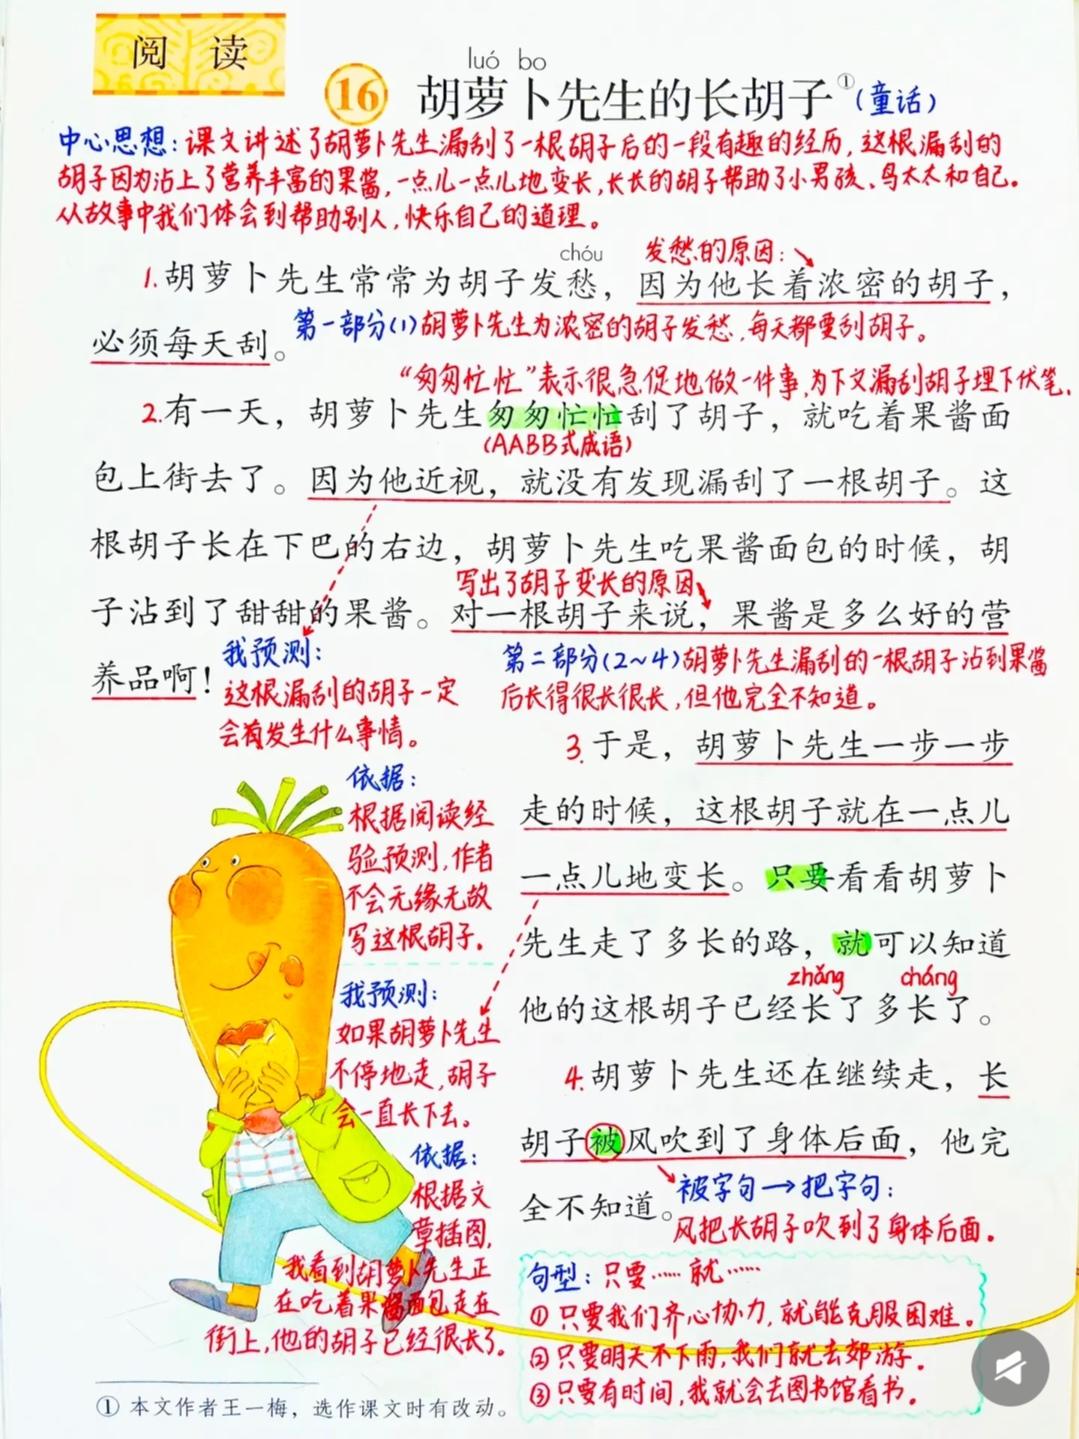 阅 读
luó bo
16 胡萝卜先生的长胡子①(童话)
中心思想:课文讲述了胡萝卜先生漏刮了一根胡子后的一段有趣的经历,这根漏刮的
胡子因为沾上了营养丰富的果酱,一点儿一点儿地变长,长长的胡子帮助了小男孩、鸟太太和自己。
从故事中我们体会到帮助别人,快乐自己的道理。
chóu
发愁的原因:
1.胡萝卜先生常常为胡子发愁,因为他长着浓密的胡子,
必须每天刮。
第一部分(1)胡萝卜先生为浓密的胡子发愁,每天都要刮胡子。
“匆匆忙忙”表示很急促地做一件事,为下文漏刮胡子埋下伏笔.
2.有一天,胡萝卜先生匆匆忙忙刮了胡子,就吃着果酱面
(AABB式成语)
包上街去了。因为他近视,就没有发现漏刮了一根胡子。这
根胡子长在下巴的右边,胡萝卜先生吃果酱面包的时候,胡
写出了胡子变长的原因
子沾到了甜甜的果酱。对一根胡子来说,果酱是多么好的营
养品啊!
我预测:
这根漏刮的胡子一定
会有发生什么事情。
第二部分(2~4)胡萝卜先生漏刮的一根胡子沾到果酱
后长得很长很长,但他完全不知道。
依据:
根据阅读经
验预测,作者
不会无缘无故
写这根胡子.
我预测:
如果胡萝卜先生
不停地走,胡子
会一直长下去。
依据:
根据文
章插图,
我看到胡萝卜先生正
在吃着果酱面包走在
街上,他的胡子已经很长了.
3.于是,胡萝卜先生一步一步
走的时候,这根胡子就在一点儿
一点儿地变长。只要看看胡萝卜
先生走了多长的路,就可以知道
zhǎng cháng
他的这根胡子已经长了多长了。
4.胡萝卜先生还在继续走,长
胡子被风吹到了身体后面,他完
全不知道。
被字句→把字句:
风把长胡子吹到了身体后面.
句型:只要……就……
①只要我们齐心协力,就能克服困难。
②只要明天不下雨,我们就去郊游.
③只要有时间,我就会去图书馆看书.
① 本文作者王一梅,选作课文时有改动。